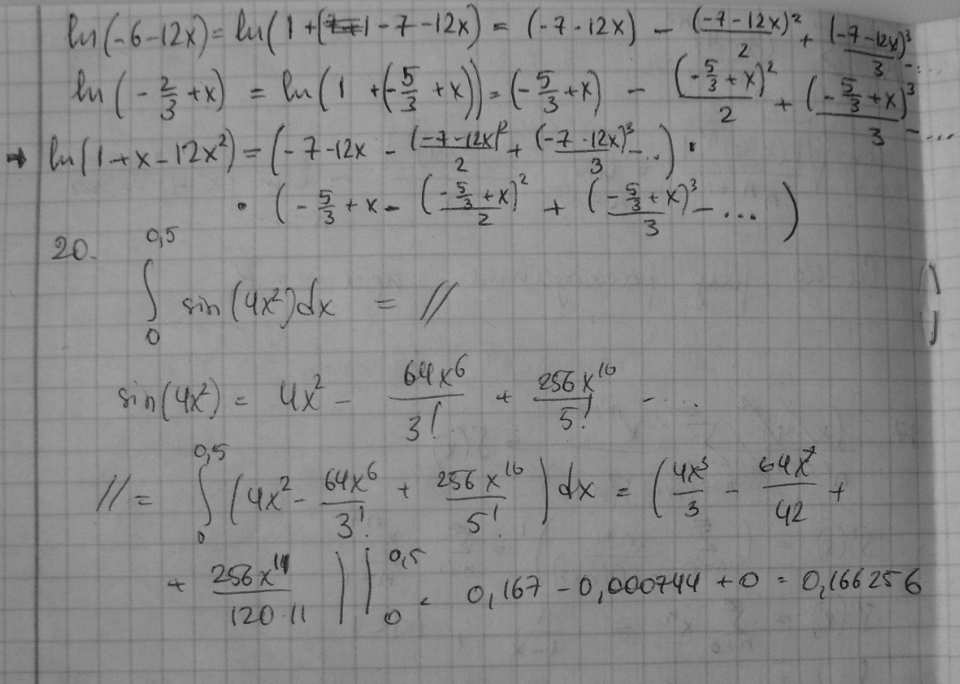 ln(-6-12x) = ln(1+(-7-12x) = (-7-12x) - (-7-12x)²/2 + (-7-12x)³/3 - ...
ln(-2/3 + x) = ln(1 + (-5/3 + x)) = (-5/3 + x) - (-5/3 + x)²/2 + (-5/3 + x)³/3 - ...
→ ln(1+x-12x²) = (-7-12x - (-7-12x)²/2 + (-7-12x)³/3 - ..) ·
· (-5/3 + x - (-5/3 + x)²/2 + (-5/3 + x)³/3 - ... )
20. ∫₀^0,5 sin(4x²)dx = //
sin(4x²) = 4x² - 64x⁶/3! + 256x¹⁰/5! - ...
// = ∫₀^0,5 (4x² - 64x⁶/3! + 256x¹⁰/5!) dx = (4x³/3 - 64x⁷/42 +
+ 256x¹¹/120·11)|₀^0,5 = 0,167 - 0,000744 + 0 = 0,166256